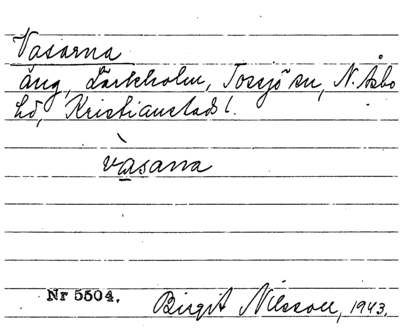 Vasarna
äng, Lärkholm, Tossjö sn, N. Åsbo
hd, Kristianstads l.
vàsana
Nr 5504.
Birgit Nilsson, 1943.